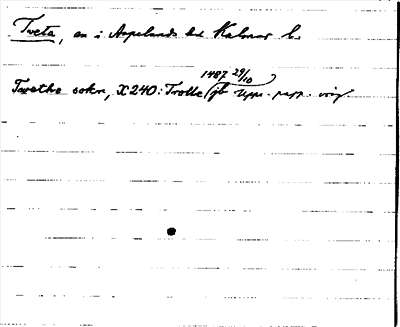 Tveta, sn i Aspelands hd Kalmar l.
1487 29/10
Twetho sokn, X 240: Trolle pb Upps. papp. orig.